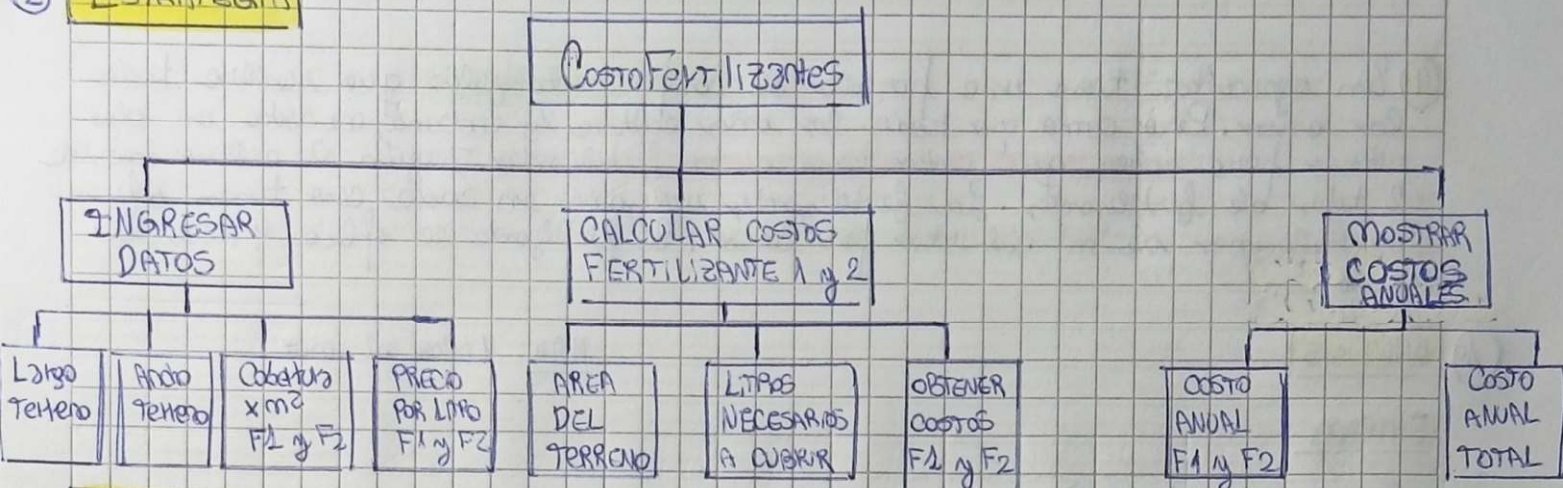 2
CostoFertilizantes
INGRESAR
DATOS
CALCULAR COSTOS
FERTILIZANTE 1 y 2
MOSTRAR
COSTOS
ANUALES
Largo
Terreno
Ancho
Terreno
Cobertura
x m2
F1 y F2
PRECIO
POR LITRO
F1 y F2
AREA
DEL
TERRENO
LITROS
NECESARIOS
A CUBRIR
OBTENER
COSTOS
F1 y F2
COSTO
ANUAL
F1 y F2
COSTO
ANUAL
TOTAL